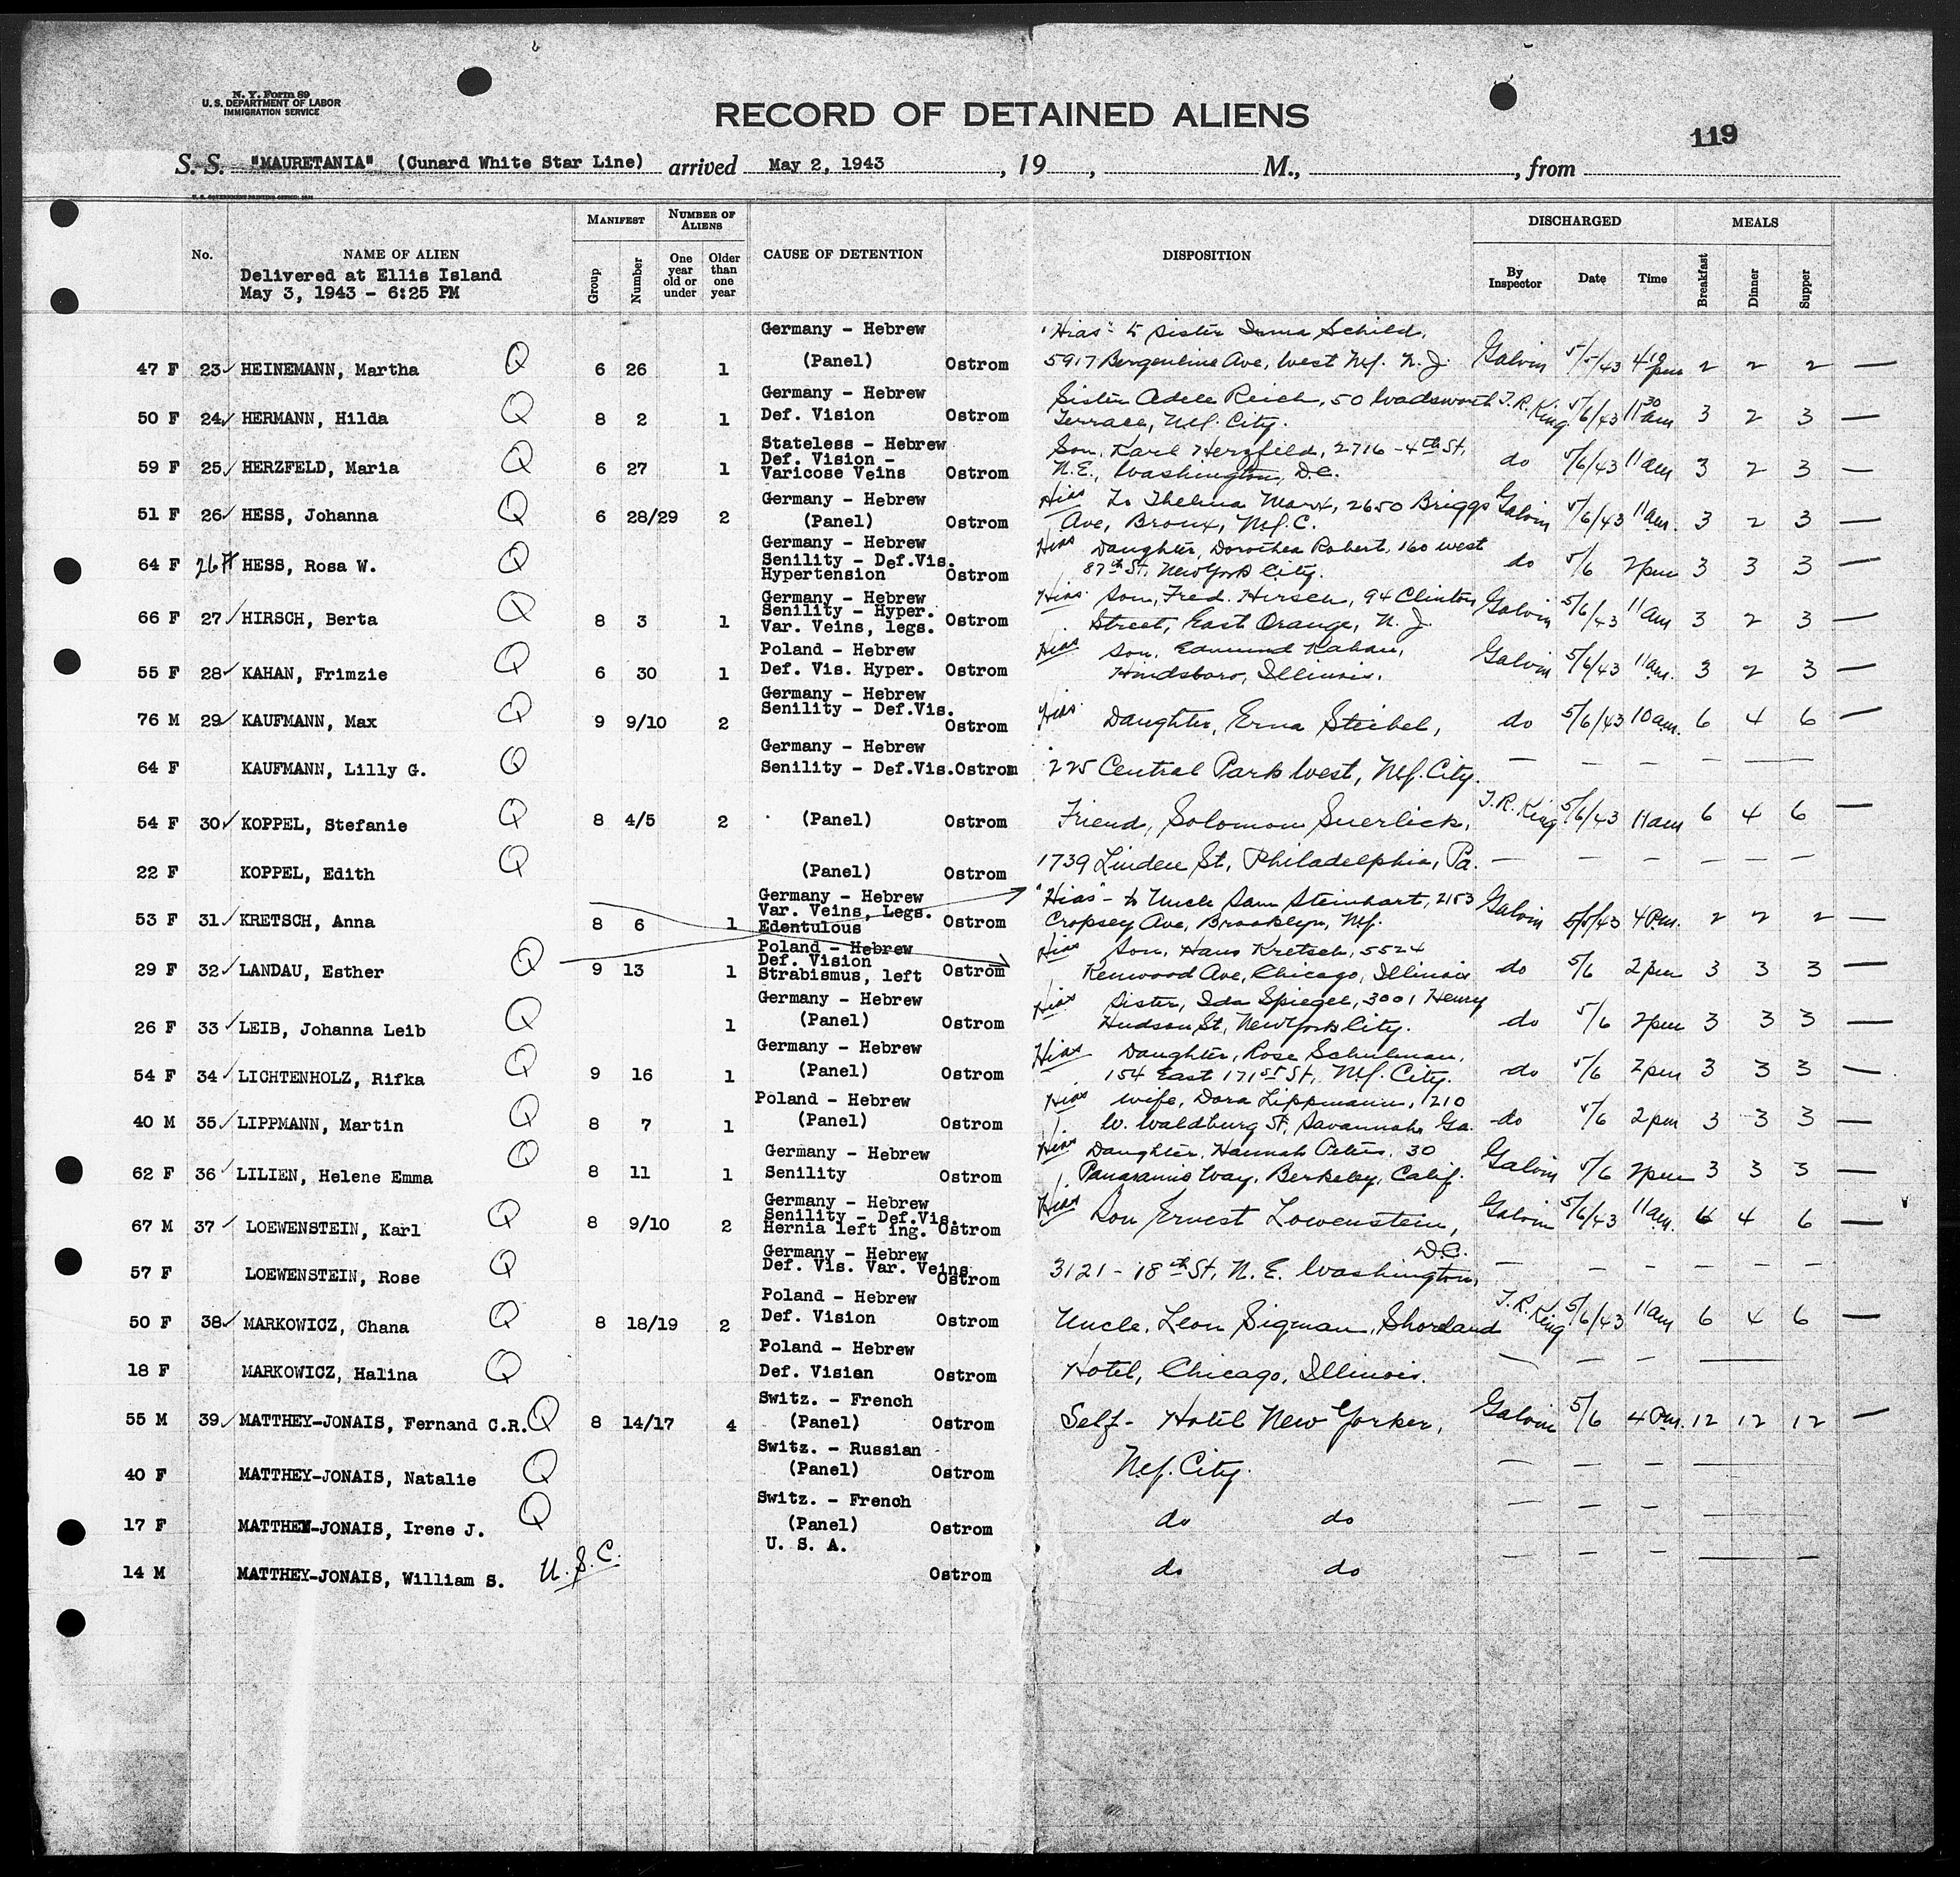 N. Y. Form 89
U. S. DEPARTMENT OF LABOR
IMMIGRATION SERVICE
RECORD OF DETAINED ALIENS
119
S. S. "MAURETANIA" (Cunard White Star Line) arrived May 2, 1943, 19 , M., , from
U. S. GOVERNMENT PRINTING OFFICE
No. NAME OF ALIEN MANIFEST Group Number NUMBER OF ALIENS One year old or under Older than one year CAUSE OF DETENTION DISPOSITION DISCHARGED By Inspector Date Time MEALS Breakfast Dinner Supper
Delivered at Ellis Island
May 3, 1943 - 6:25 PM
Germany - Hebrew "Hias" to sister Schild,
47 F 23 HEINEMANN, Martha Q 6 26 1 (Panel) Ostrom 5917 Bergenline Ave, West N.Y. N.J. Galvin 5/5/43 4 10 pm 2 2 2 —
Germany - Hebrew Sister Adele Reich, 50 Wadsworth
50 F 24 HERMANN, Hilda Q 8 2 1 Def. Vision Ostrom Terrace, N.Y. City. T.R. King 5/6/43 11 30 am 3 2 3 —
Stateless - Hebrew Son, Karl Herzfeld, 2716 - 4th St,
Def. Vision -
59 F 25 HERZFELD, Maria Q 6 27 1 Varicose Veins Ostrom N.E., Washington, D.C. do 5/6/43 11 am 3 2 3 —
Germany - Hebrew Hias To Thelma Marx, 2650 Briggs
51 F 26 HESS, Johanna Q 6 28/29 2 (Panel) Ostrom Ave, Bronx, N.Y.C. Galvin 5/6/43 11 am. 3 2 3 —
Germany - Hebrew Hias Daughter, Dorothea Robert, 160 West
Senility - Def.Vis.
64 F 26A HESS, Rosa W. Q Hypertension Ostrom 87th St, New York City. do 5/6 2pm 3 3 3 —
Germany - Hebrew Hias. Son, Fred. Hirsch, 94 Clinton
Senility - Hyper.
66 F 27 HIRSCH, Berta Q 8 3 1 Var. Veins, legs. Ostrom Street, East Orange, N.J. Galvin 5/6/43 11 am 3 2 3 —
Poland - Hebrew Hias Son, Edmund Kahan,
55 F 28 KAHAN, Frimzie Q 6 30 1 Def. Vis. Hyper. Ostrom Hindsboro, Illinois. Galvin 5/6/43 11 am. 3 2 3 —
Germany - Hebrew
Senility - Def.Vis.
76 M 29 KAUFMANN, Max Q 9 9/10 2 Ostrom Hias. Daughter, Erna Steibel, do 5/6/43 10 am. 6 4 6 —
Germany - Hebrew
64 F KAUFMANN, Lilly G. Q Senility - Def.Vis. Ostrom 225 Central Park West, N.Y. City. — — — — —
54 F 30 KOPPEL, Stefanie Q 8 4/5 2 (Panel) Ostrom Friend, Solomon Suerlick, T.R. King 5/6/43 11 am 6 4 6 —
22 F KOPPEL, Edith Q (Panel) Ostrom 1739 Linden St, Philadelphia, Pa. — — — — — —
Germany - Hebrew "Hias" - to Uncle Sam Steinhart, 2153
Var. Veins, Legs.
53 F 31 KRETSCH, Anna 8 6 1 Edentulous Ostrom Cropsey Ave, Brooklyn, N.Y. Galvin 5/5/43 4 P.m. 2 2 2 —
Poland - Hebrew Hias Son, Hans Kretsch, 5524
Def. Vision
29 F 32 LANDAU, Esther Q 9 13 1 Strabismus, left Ostrom Kenwood Ave, Chicago, Illinois do 5/6 2 pm 3 3 3 —
Germany - Hebrew Hias Sister, Ida Spiegel, 3001 Henry
26 F 33 LEIB, Johanna Leib Q 1 (Panel) Ostrom Hudson St, New York City. do 5/6 2pm 3 3 3 —
Germany - Hebrew Hias Daughter, Rose Schulman,
54 F 34 LICHTENHOLZ, Rifka Q 9 16 1 (Panel) Ostrom 154 East 171st St, N.Y. City. do 5/6 2pm 3 3 3 —
Poland - Hebrew Hias Wife, Dora Lippmann, 210
40 M 35 LIPPMANN, Martin Q 8 7 1 (Panel) Ostrom W. Waldburg St, Savannah, Ga. do 5/6 2 pm 3 3 3 —
Germany - Hebrew Hias Daughter, Hannah Peters, 30
62 F 36 LILIEN, Helene Emma Q 8 11 1 Senility Ostrom Panaramic Way, Berkeley, Calif. Galvin 5/6 2pm 3 3 3 —
Germany - Hebrew
Senility - Def.Vis.
67 M 37 LOEWENSTEIN, Karl Q 8 9/10 2 Hernia left ing. Ostrom Hias Son Ernest Lowenstein, Galvin 5/6/43 11 am. 6 4 6 —
Germany - Hebrew D.C.
Def. Vis. Var. Veins
57 F LOEWENSTEIN, Rose Q Ostrom 3121 - 18th St, N.E. Washington, — — — — — —
Poland - Hebrew
50 F 38 MARKOWICZ, Chana Q 8 18/19 2 Def. Vision Ostrom Uncle, Leon Sigman, Shoreland T.R. King 5/6/43 11 am 6 4 6 —
Poland - Hebrew
18 F MARKOWICZ, Halina Q Def. Vision Ostrom Hotel, Chicago, Illinois. — — — —
Switz. - French
55 M 39 MATTHEY-JONAIS, Fernand C.R. Q 8 14/17 4 (Panel) Ostrom Self - Hotel New Yorker, Galvin 5/6 4 P.m. 12 12 12 —
Switz. - Russian
40 F MATTHEY-JONAIS, Natalie Q (Panel) Ostrom N.Y. City. — — — —
Switz. - French
17 F MATTHEY-JONAIS, Irene J. Q (Panel) Ostrom do do — — — —
U. S. A.
14 M MATTHEY-JONAIS, William S. U.S.C. Ostrom do do — — — — —